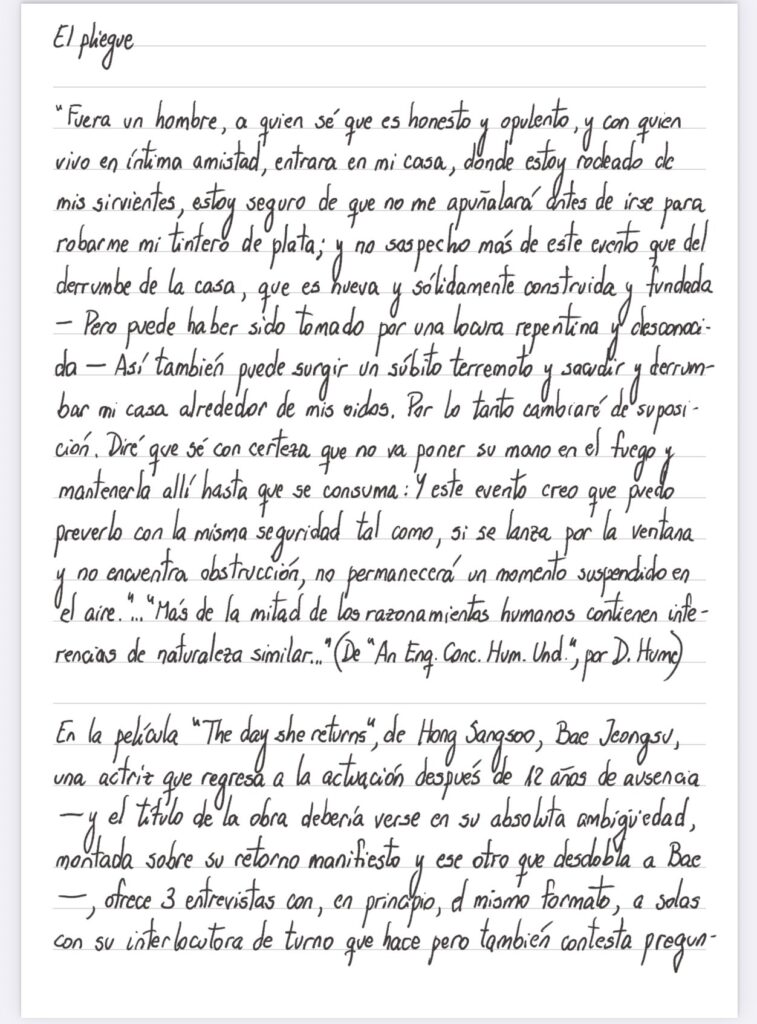 El pliegue
"Fuera un hombre, a quien sé que es honesto y opulento, y con quien
vivo en íntima amistad, entrara en mi casa, donde estoy rodeado de
mis sirvientes, estoy seguro de que no me apuñalará antes de irse para
robarme mi tintero de plata; y no sospecho más de este evento que del
derrumbe de la casa, que es nueva y sólidamente construida y fundada
— Pero puede haber sido tomado por una locura repentina y desconoci-
da — Así también puede surgir un súbito terremoto y sacudir y derrum-
bar mi casa alrededor de mis oidos. Por lo tanto cambiaré de suposi-
ción. Diré que sé con certeza que no va poner su mano en el fuego y
mantenerla allí hasta que se consuma: Y este evento creo que puedo
preverlo con la misma seguridad tal como, si se lanza por la ventana
y no encuentra obstrucción, no permanecerá un momento suspendido en
el aire."..."Más de la mitad de los razonamientos humanos contienen infe-
rencias de naturaleza similar..." (De "An Enq. Conc. Hum. Und.", por D. Hume)
En la película "The day she returns", de Hong Sangsoo, Bae Jeongsu,
una actriz que regresa a la actuación después de 12 años de ausencia
— y el título de la obra debería verse en su absoluta ambigüedad,
montada sobre su retorno manifiesto y ese otro que desdobla a Bae
—, ofrece 3 entrevistas con, en principio, el mismo formato, a solas
con su interlocutora de turno que hace pero también contesta pregun-